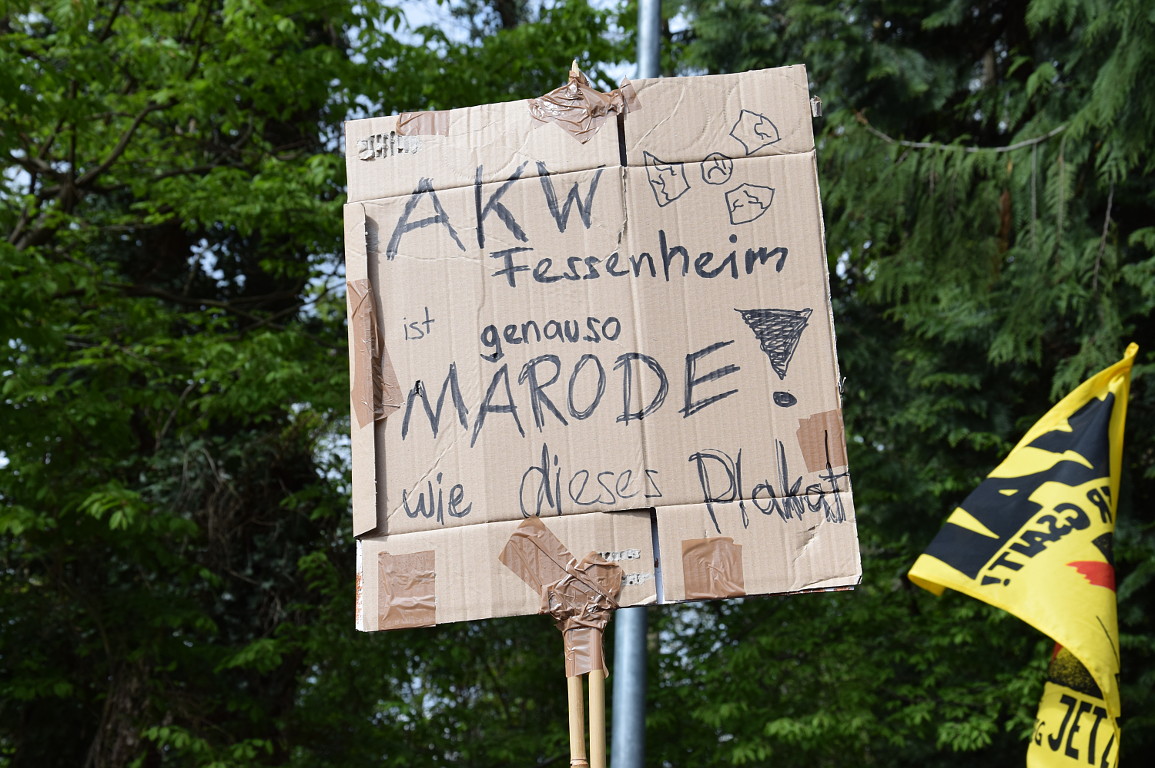 AKW
Fessenheim
ist genauso
MARODE!
wie dieses Plakat
JETZ